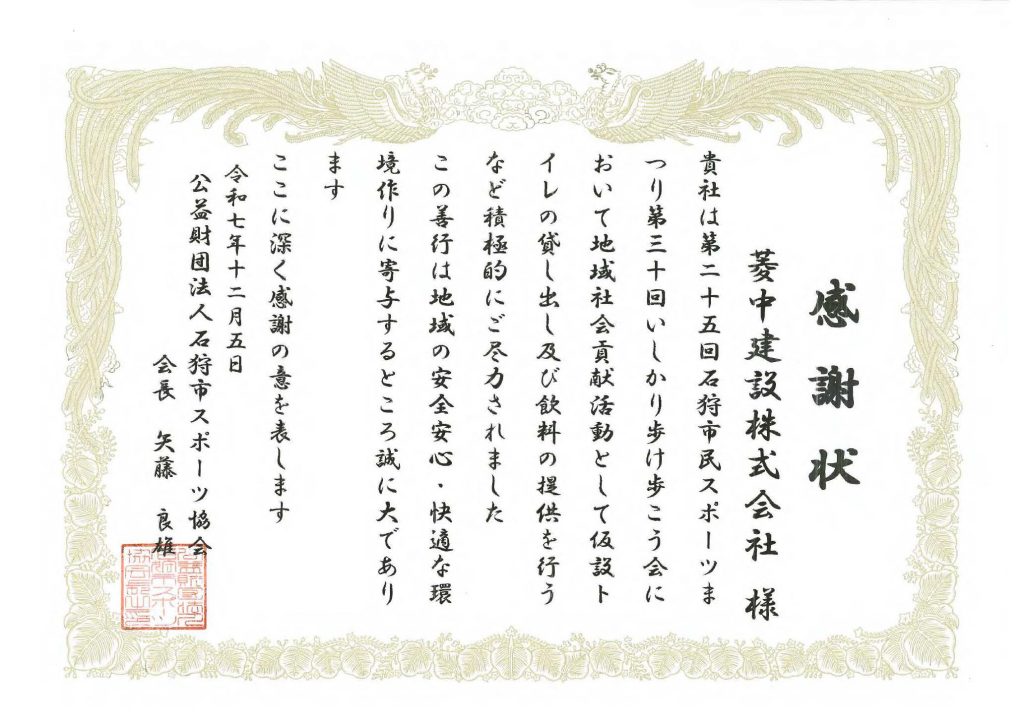 感謝状
菱中建設株式会社 様
貴社は第二十五回石狩市民スポーツま
つり第三十回いしかり歩け歩こう会に
おいて地域社会貢献活動として仮設ト
イレの貸し出し及び飲料の提供を行う
など積極的にご尽力されました
この善行は地域の安全安心・快適な環
境作りに寄与するところ誠に大であり
ます
ここに深く感謝の意を表します
令和七年十二月五日
公益財団法人石狩市スポーツ協会
会長 矢藤 良雄